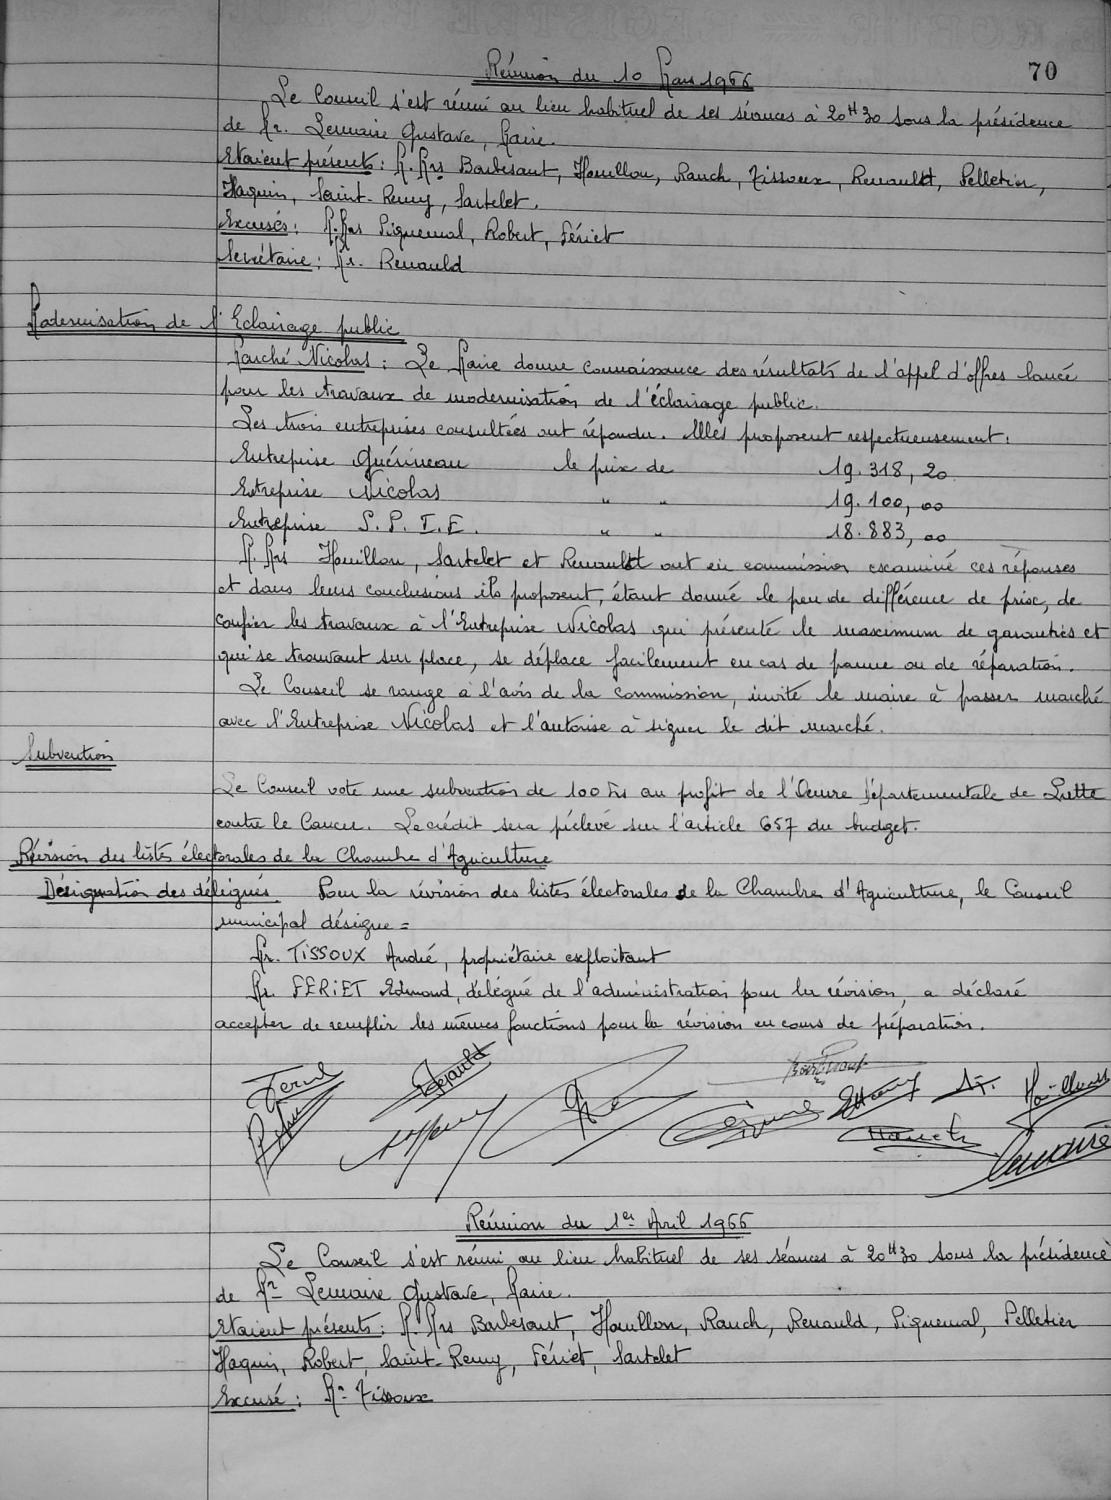 70
Réunion du 10 Mars 1966
Le Conseil s'est réuni au lieu habituel de ses séances à 20H30 sous la présidence
de Mr. Lemaire Gustave, Maire.
Etaient présents : M.Mrs Barbesant, Houillon, Rauch, Tissoux, Renauld, Pelletier,
Haquin, Saint-Remy, Sartelet.
Excusés : M.Mrs Piquemal, Robert, Fériet
Secrétaire : Mr. Renauld
Modernisation de l'Eclairage public
Marché Nicolas : Le Maire donne connaissance des résultats de l'appel d'offres lancé
pour les travaux de modernisation de l'éclairage public.
Les trois entreprises consultées ont répondu. Elles proposent respectueusement :
Entreprise Guérineau le prix de 19.318,20
Entreprise Nicolas " " 19.100,00
Entreprise S.P.I.E. " " 18.883,00
M.Mrs Houillon, Sartelet et Renauld ont en commission examiné ces réponses
et dans leurs conclusions ils proposent, étant donné le peu de différence de prix, de
confier les travaux à l'Entreprise Nicolas qui présente le maximum de garanties et
qui se trouvant sur place, se déplace facilement en cas de panne ou de réparation.
Le Conseil se range à l'avis de la commission, invite le maire à passer marché
avec l'Entreprise Nicolas et l'autorise à signer le dit marché.
Subvention
Le Conseil vote une subvention de 100 Frs au profit de l'Oeuvre Départementale de Lutte
contre le Cancer. Le crédit sera prélevé sur l'article 657 du budget.
Révision des listes électorales de la Chambre d'Agriculture
Désignation des délégués Pour la révision des listes électorales de la Chambre d'Agriculture, le Conseil
municipal désigne =
Mr. TISSOUX André, propriétaire exploitant
Mr. FERIET Edmond, délégué de l'administration pour la révision, a déclaré
accepter de remplir les mêmes fonctions pour la révision en cours de préparation.
Renauld
Houillon
Rauch
Lemaire
Réunion du 1er Avril 1966
Le Conseil s'est réuni au lieu habituel de ses séances à 20H30 sous la présidence
de Mr Lemaire Gustave, Maire.
Etaient présents : M.Mrs Barbesant, Houillon, Rauch, Renauld, Piquemal, Pelletier
Haquin, Robert, Saint-Remy, Fériet, Sartelet
Excusé : Mr Tissoux